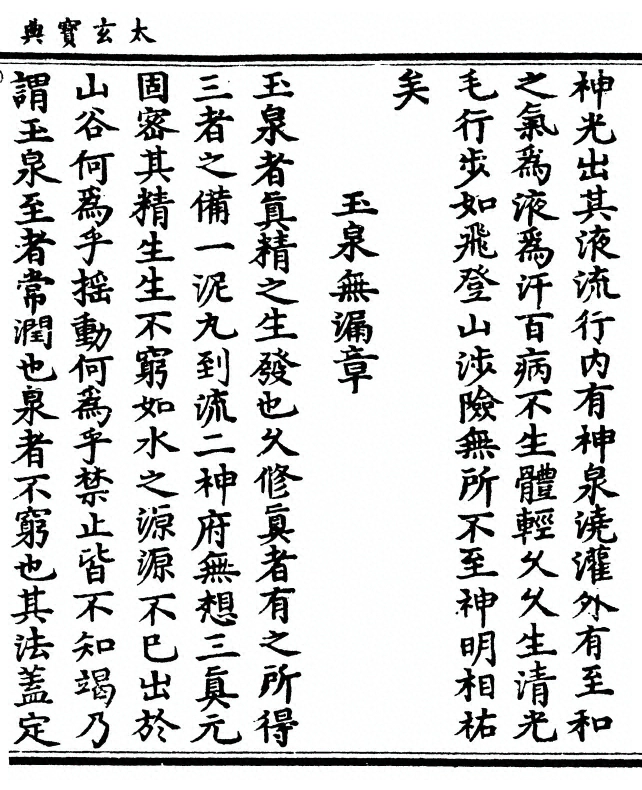 太玄寶典
神光出其液流行內有神泉澆灌外有至和
之氣為液為汗百病不生體輕久久生清光
毛行步如飛登山涉險無所不至神明相祐
矣
玉泉無漏章
玉泉者真精之生發也久修真者有之所得
三者之備一泥九到流二神府無想三真元
固密其精生生不窮如水之源源不已出於
山谷何為乎搖動何為乎禁止皆不知竭乃
謂玉泉至者常潤也泉者不窮也其法蓋定